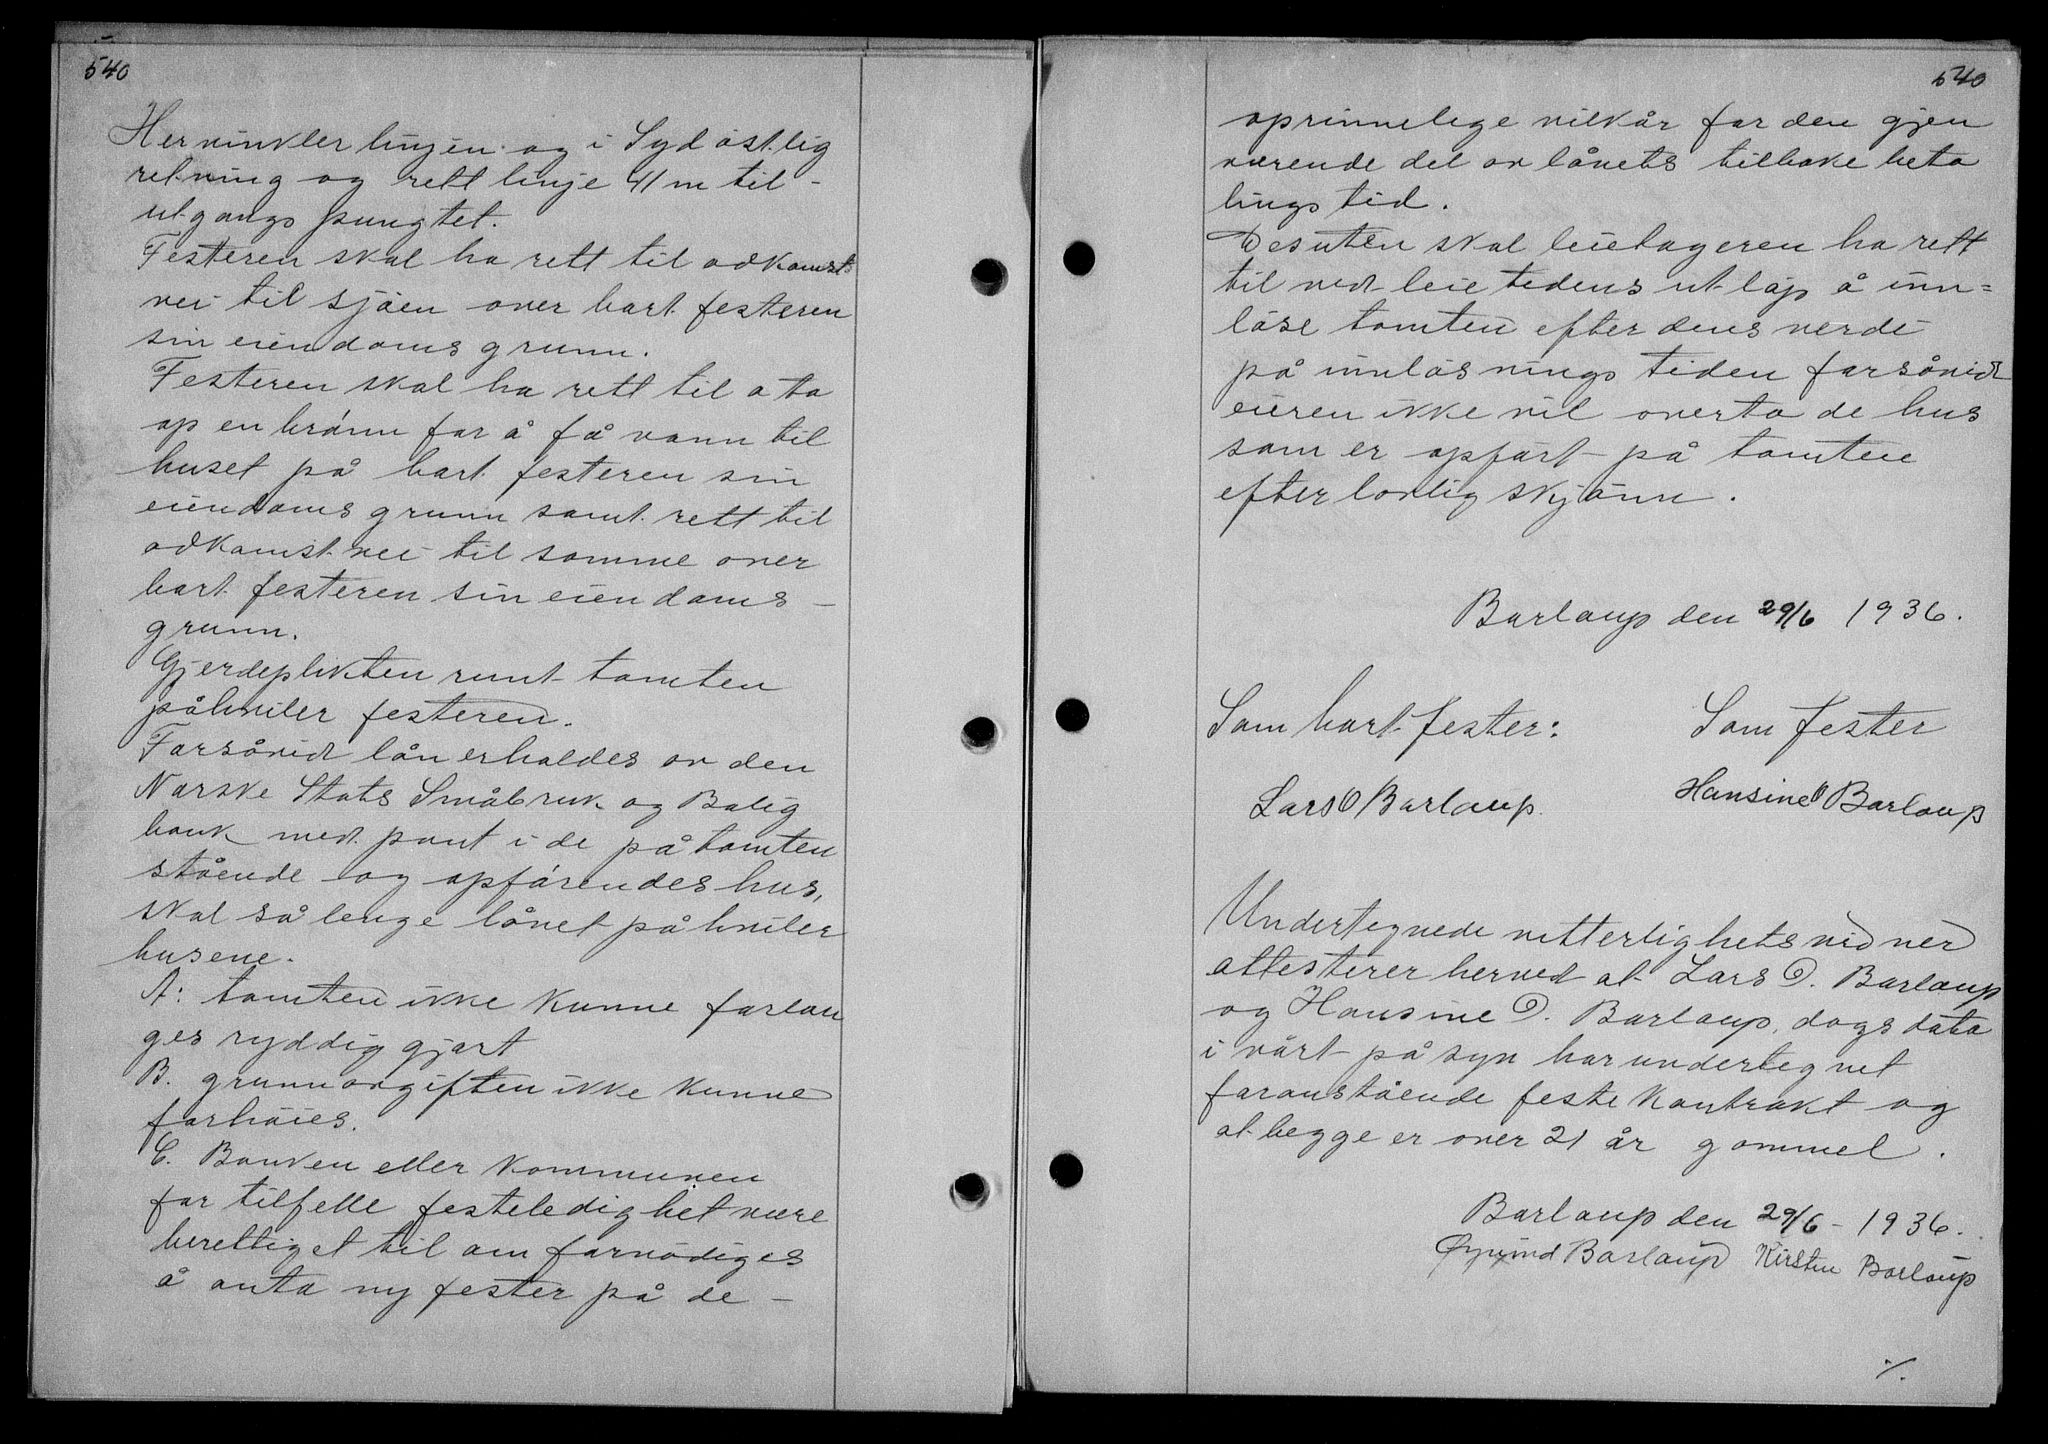 540
Her vinkler linjen og i Syd östlig
retning og rett linje 41 m til-
utgangs pungtet.
Festeren skal ha rett til adkomst
vei til sjöen over bort festeren
sin eiendoms grunn.
Festeren skal ha rett til a ta
op en brönn for å få vann til
huset på bort festeren sin
eiendoms grunn samt rett til
adkomst vei til samme over
bort festeren sin eien doms-
grunn.
Gjerdeplikten runt tomten
påhviler festeren.
Forsåvidt lån erholdes av den
Norske Stats Småbruk og Bolig
bank med pant i de på tomten
stående og opförendes hus,
skal så lenge lånet på hviler
husene.
A: tomten ikke kunne forlan
ges ryddig gjort
B. grunnavgiften ikke kunne
forhöies.
C. Banken eller kommunen
for tilfelle festeledighet være
berettiget til om fornödiges
å anta ny fester på de-
540
oprinnelige vilkår for den gjen
værende del av lånets tilbake beta
lings tid.
Desuten skal leietageren ha rett
til ved leie tidens ut löp å inn=
löse tomten efter dens verdi
på innlös nings tiden forsåvidt
eieren ikke vil overta de hus
som er opfört på tomten
efter lovlig skjönn.
Barlaup den 29/6 1936.
Som bort fester:	Som fester
Lars O Barlaup.	Hansine O Barlaup
Undertegnede vitterlighetsvidner
attesterer herved at Lars O. Barlaup
og Hansine O. Barlaup, dags dato
i vårt på syn har undertegnet
foranstående feste kontrakt og
at begge er over 21 år gammel.
Barlaup den 29/6 - 1936.
Øyvind Barlaup Kirsten Barlaup
./.